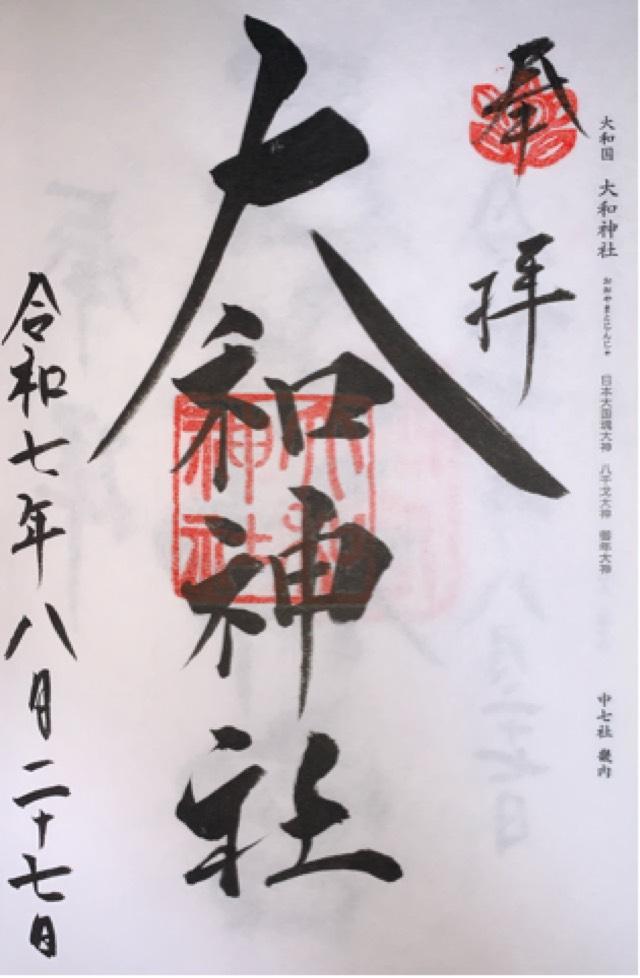 大和国 大和神社 おおやまとじんじゃ 日本大国魂大神 八千戈大神 御年大神
中七社 畿内
奉拝
大和神社
大和神社
令和七年八月二十七日